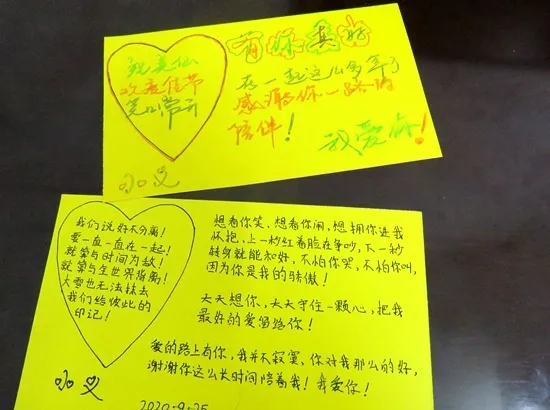 有你真好
祝美仙
欢度佳节
笑口常开
在一起这么多年了
感谢你一路的
陪伴!
我爱你!
我们说好不分离!
要一直一直在一起!
就算与时间为敌!
就算与全世界背离!
大雪也无法抹去
我们给彼此的
印记!
想看你笑,想看你闹,想拥你进我
怀抱,上一秒红着脸在争吵,下一秒
转身就能和好,不怕你哭,不怕你叫,
因为你是我的骄傲!
天天想你,天天守住一颗心,把我
最好的爱留给你!
爱的路上有你,我并不寂寞,你对我那么的好,
谢谢你这么长时间陪着我!我爱你!
2020.9.25